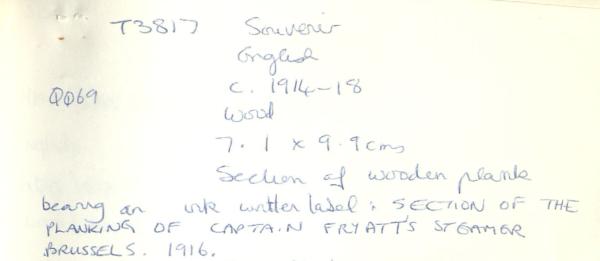 T3817 Souvenir
English
QQ69 c. 1914-18
Wood
7.1 x 9.9cms
Section of wooden plank
bearing an ink written label: SECTION OF THE
PLANKING OF CAPTAIN FRYATT'S STEAMER
BRUSSELS. 1916.